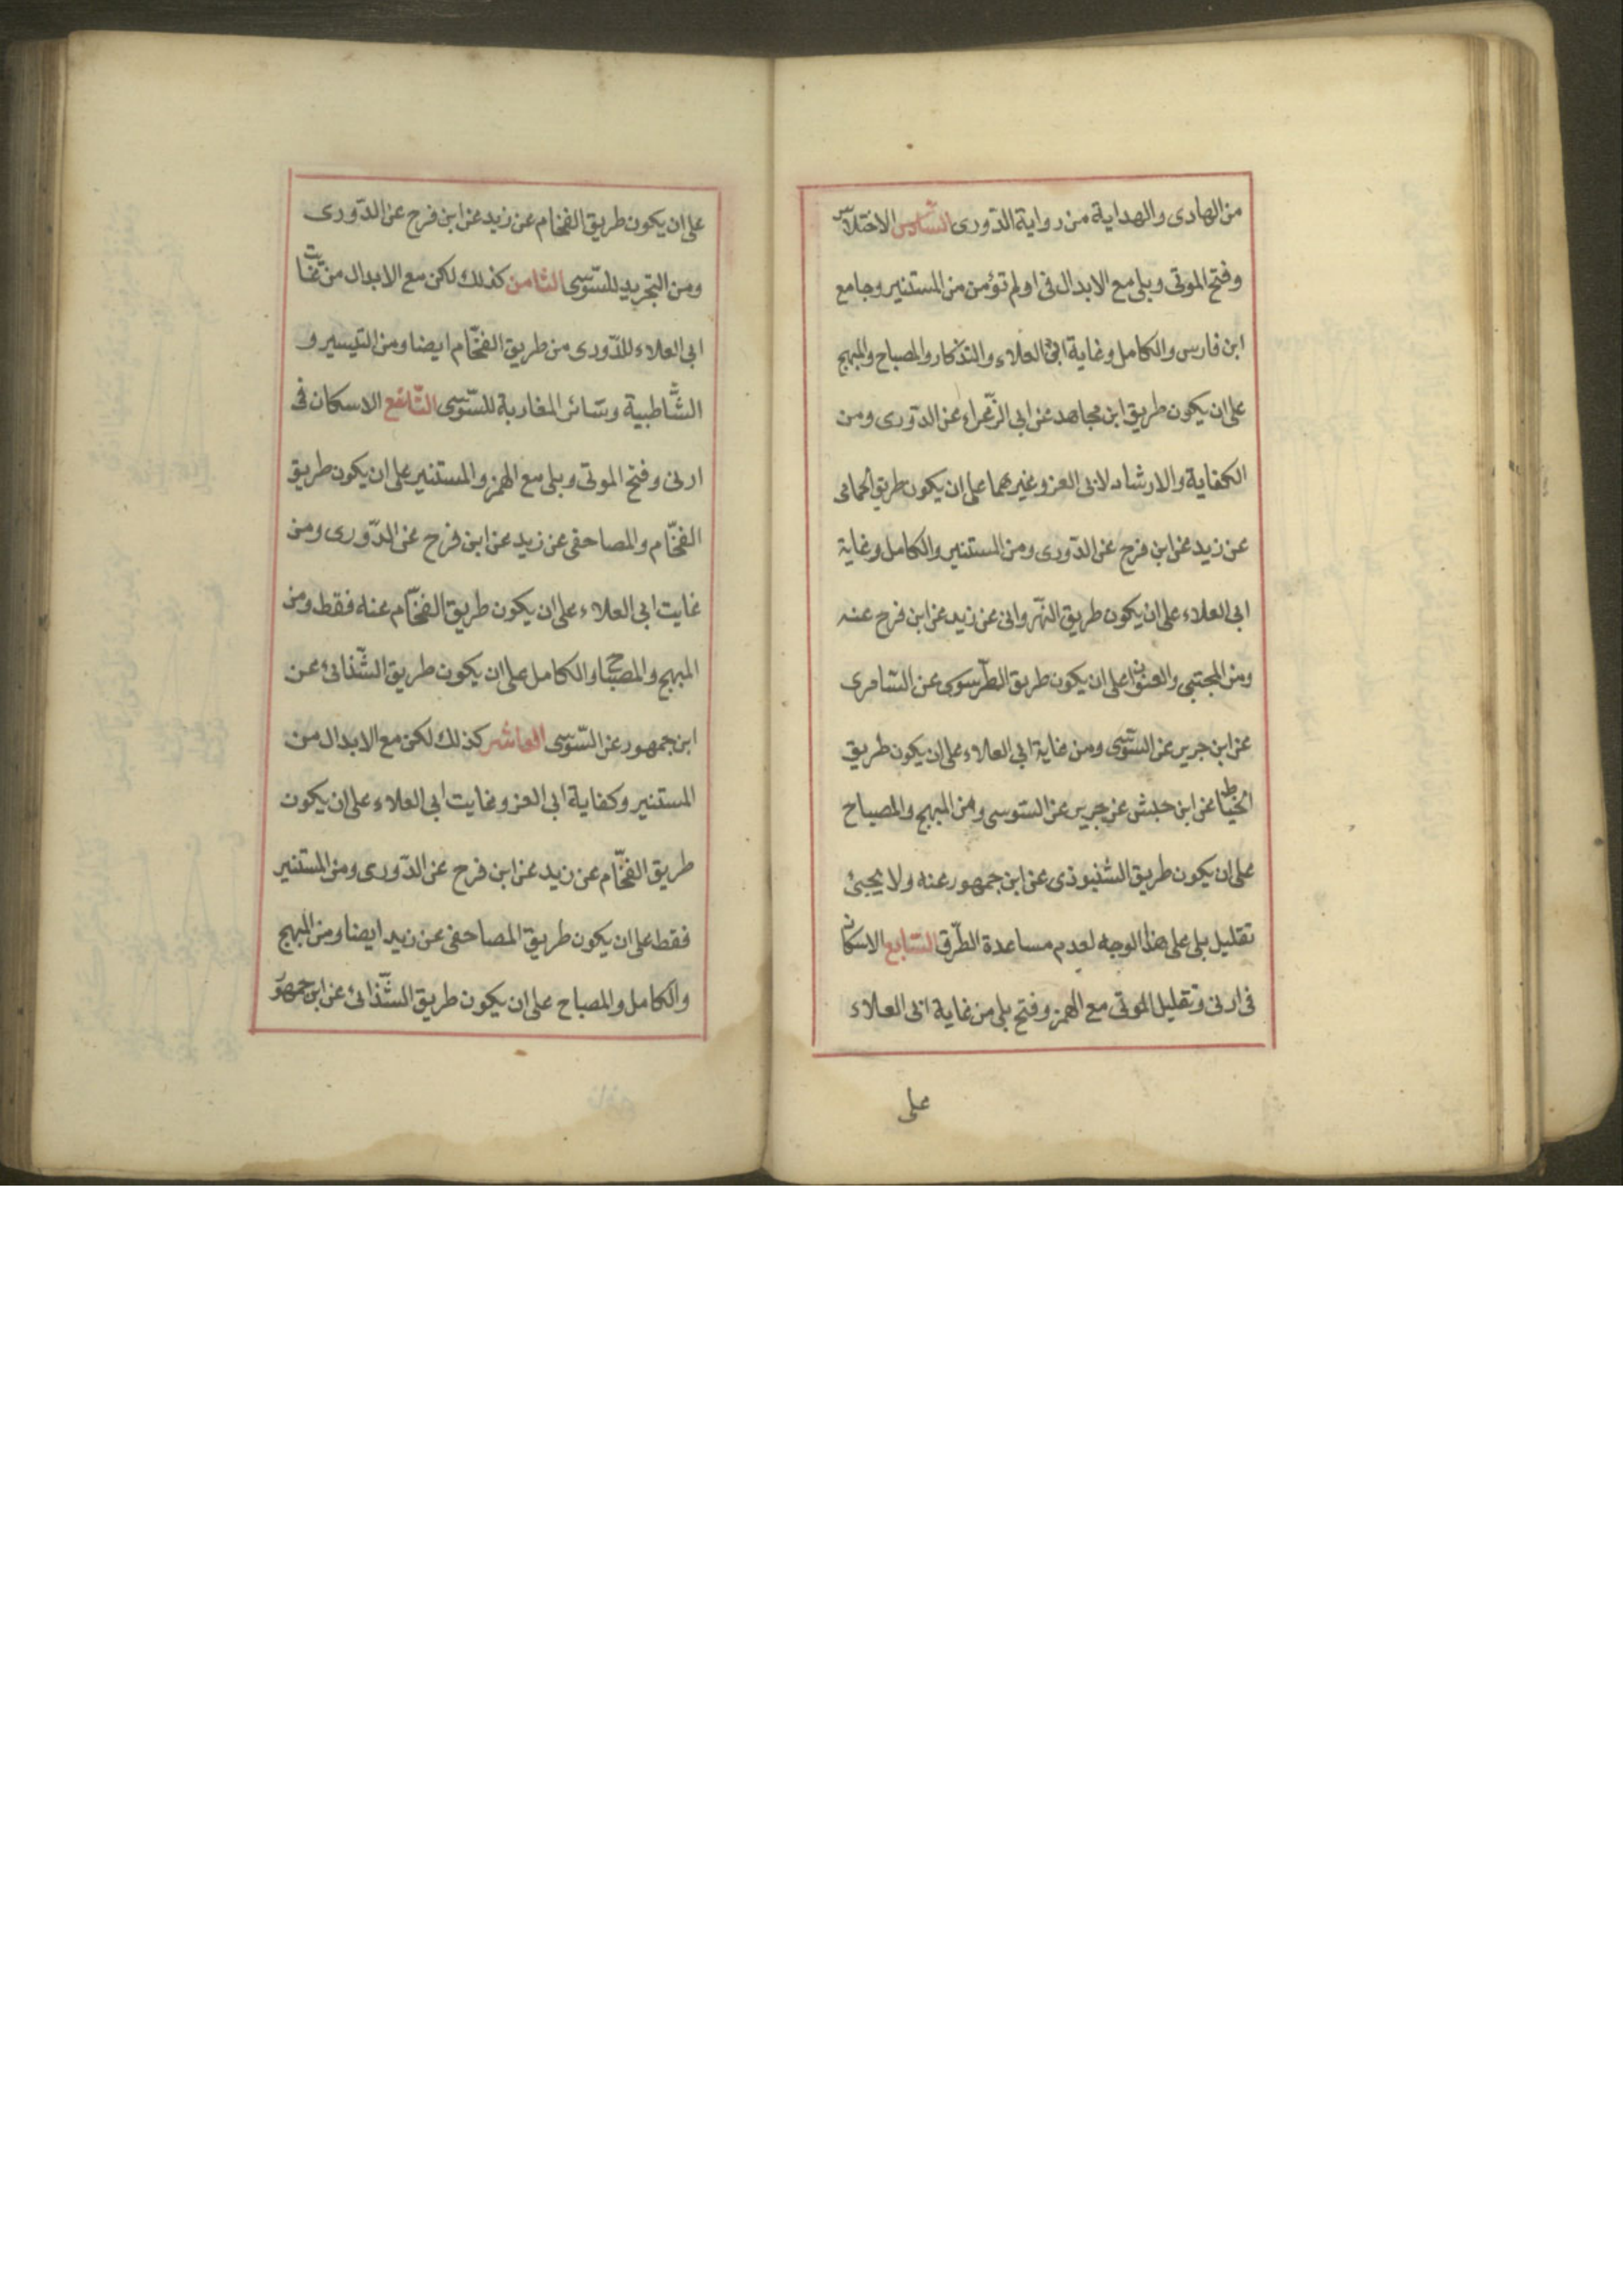 من الهادى والهداية من رواية الدّورى السّادس الاختلاس
وفتح الموتى وبلى مع الابدال فى اولم تؤمن من المستنير وجامع
ابن فارس والكامل وغاية ابى العلاء والتذكار والمصباح والمبهج
على ان يكون طريق ابن مجاهد عن ابى الزّعراء عن الدّورى ومن
الكفاية والارشاد لابى العز وغيرهما على ان يكون طريق الحمامى
عن زيد عن ابن فرح عن الدّورى ومن المستنير والكامل وغاية
ابى العلاء على ان يكون طريق النّهروانى عن زيد عن ابن فرح عنه
ومن المجتبى والعنوان على ان يكون طريق الطّرسوى عن السّامرى
عن ابن جرير عن السّوسى ومن غاية ابى العلاء على ان يكون طريق
الخيّاط عن ابن حبش عن جرير عن السّوسى ومن المبهج والمصباح
على ان يكون طريق الشنبوذى عن ابن جمهور عنه ولا يجيئ
تقليل بلى على هذا الوجه لعدم مساعدة الطّرق السّابع الاسكان
فى ارنى وتقليل الموتى مع الهمز وفتح بلى من غاية ابى العلاء
على
على ان يكون طريق الفخّام عن زيد عن ابن فرح عن الدّورى
ومن التجريد للسّوسى الثامن كذلك لكن مع الابدال من غايت
ابى العلاء للدّورى من طريق الفخّام ايضا ومن التيسير و
الشّاطبية وسائر المغاربة للسّوسى التّاسع الاسكان فى
ارنى وفتح الموتى وبلى مع الهمز والمستنير على ان يكون طريق
الفخّام والمصاحفى عن زيد عن ابن فرح عن الدّورى ومن
غايت ابى العلاء على ان يكون طريق الفخّام عنه فقط ومن
المبهج والمصباح والكامل على ان يكون طريق الشّذائى عن
ابن جمهور عن السّوسى العاشر كذلك لكن مع الابدال من
المستنير وكفاية ابى العز وغايت ابى العلاء على ان يكون
طريق الفخّام عن زيد عن ابن فرح عن الدّورى ومن المستنير
فقط على ان يكون طريق المصاحفى عن زيد ايضا ومن المبهج
والكامل والمصباح على ان يكون طريق الشّذائى عن ابن جمهور